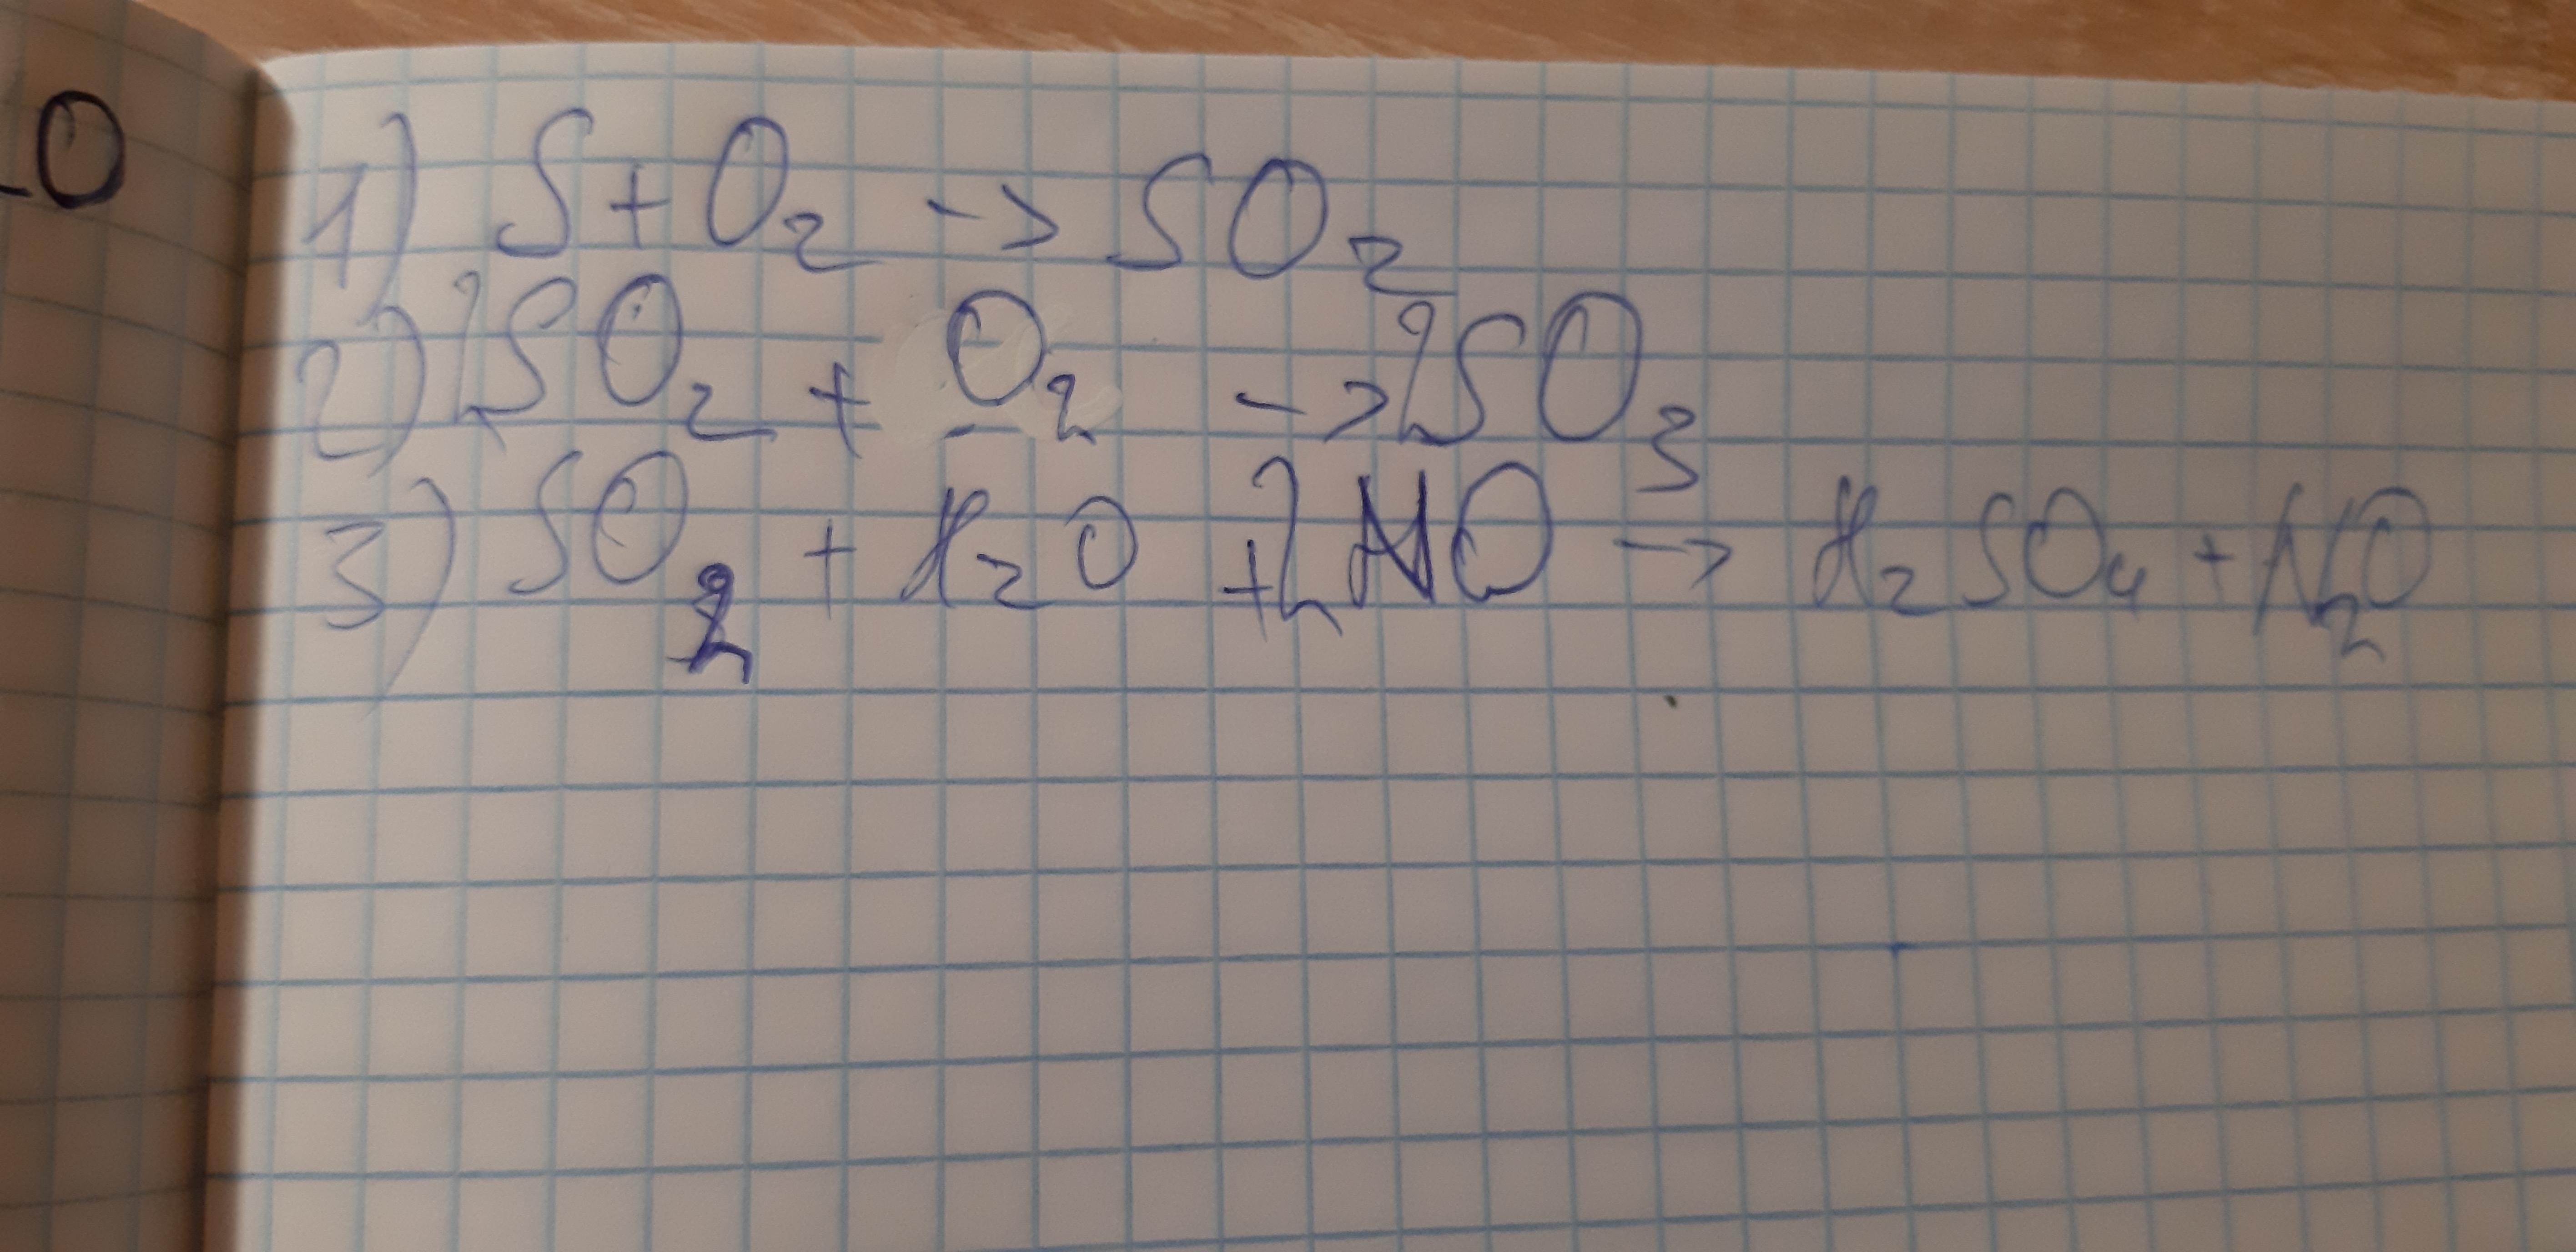 O
1) S + O₂ -> SO₂
2) 2SO₂ + O₂ -> 2SO₃
3) SO₂ + H₂O + 2NO -> H₂SO₄ + N₂O